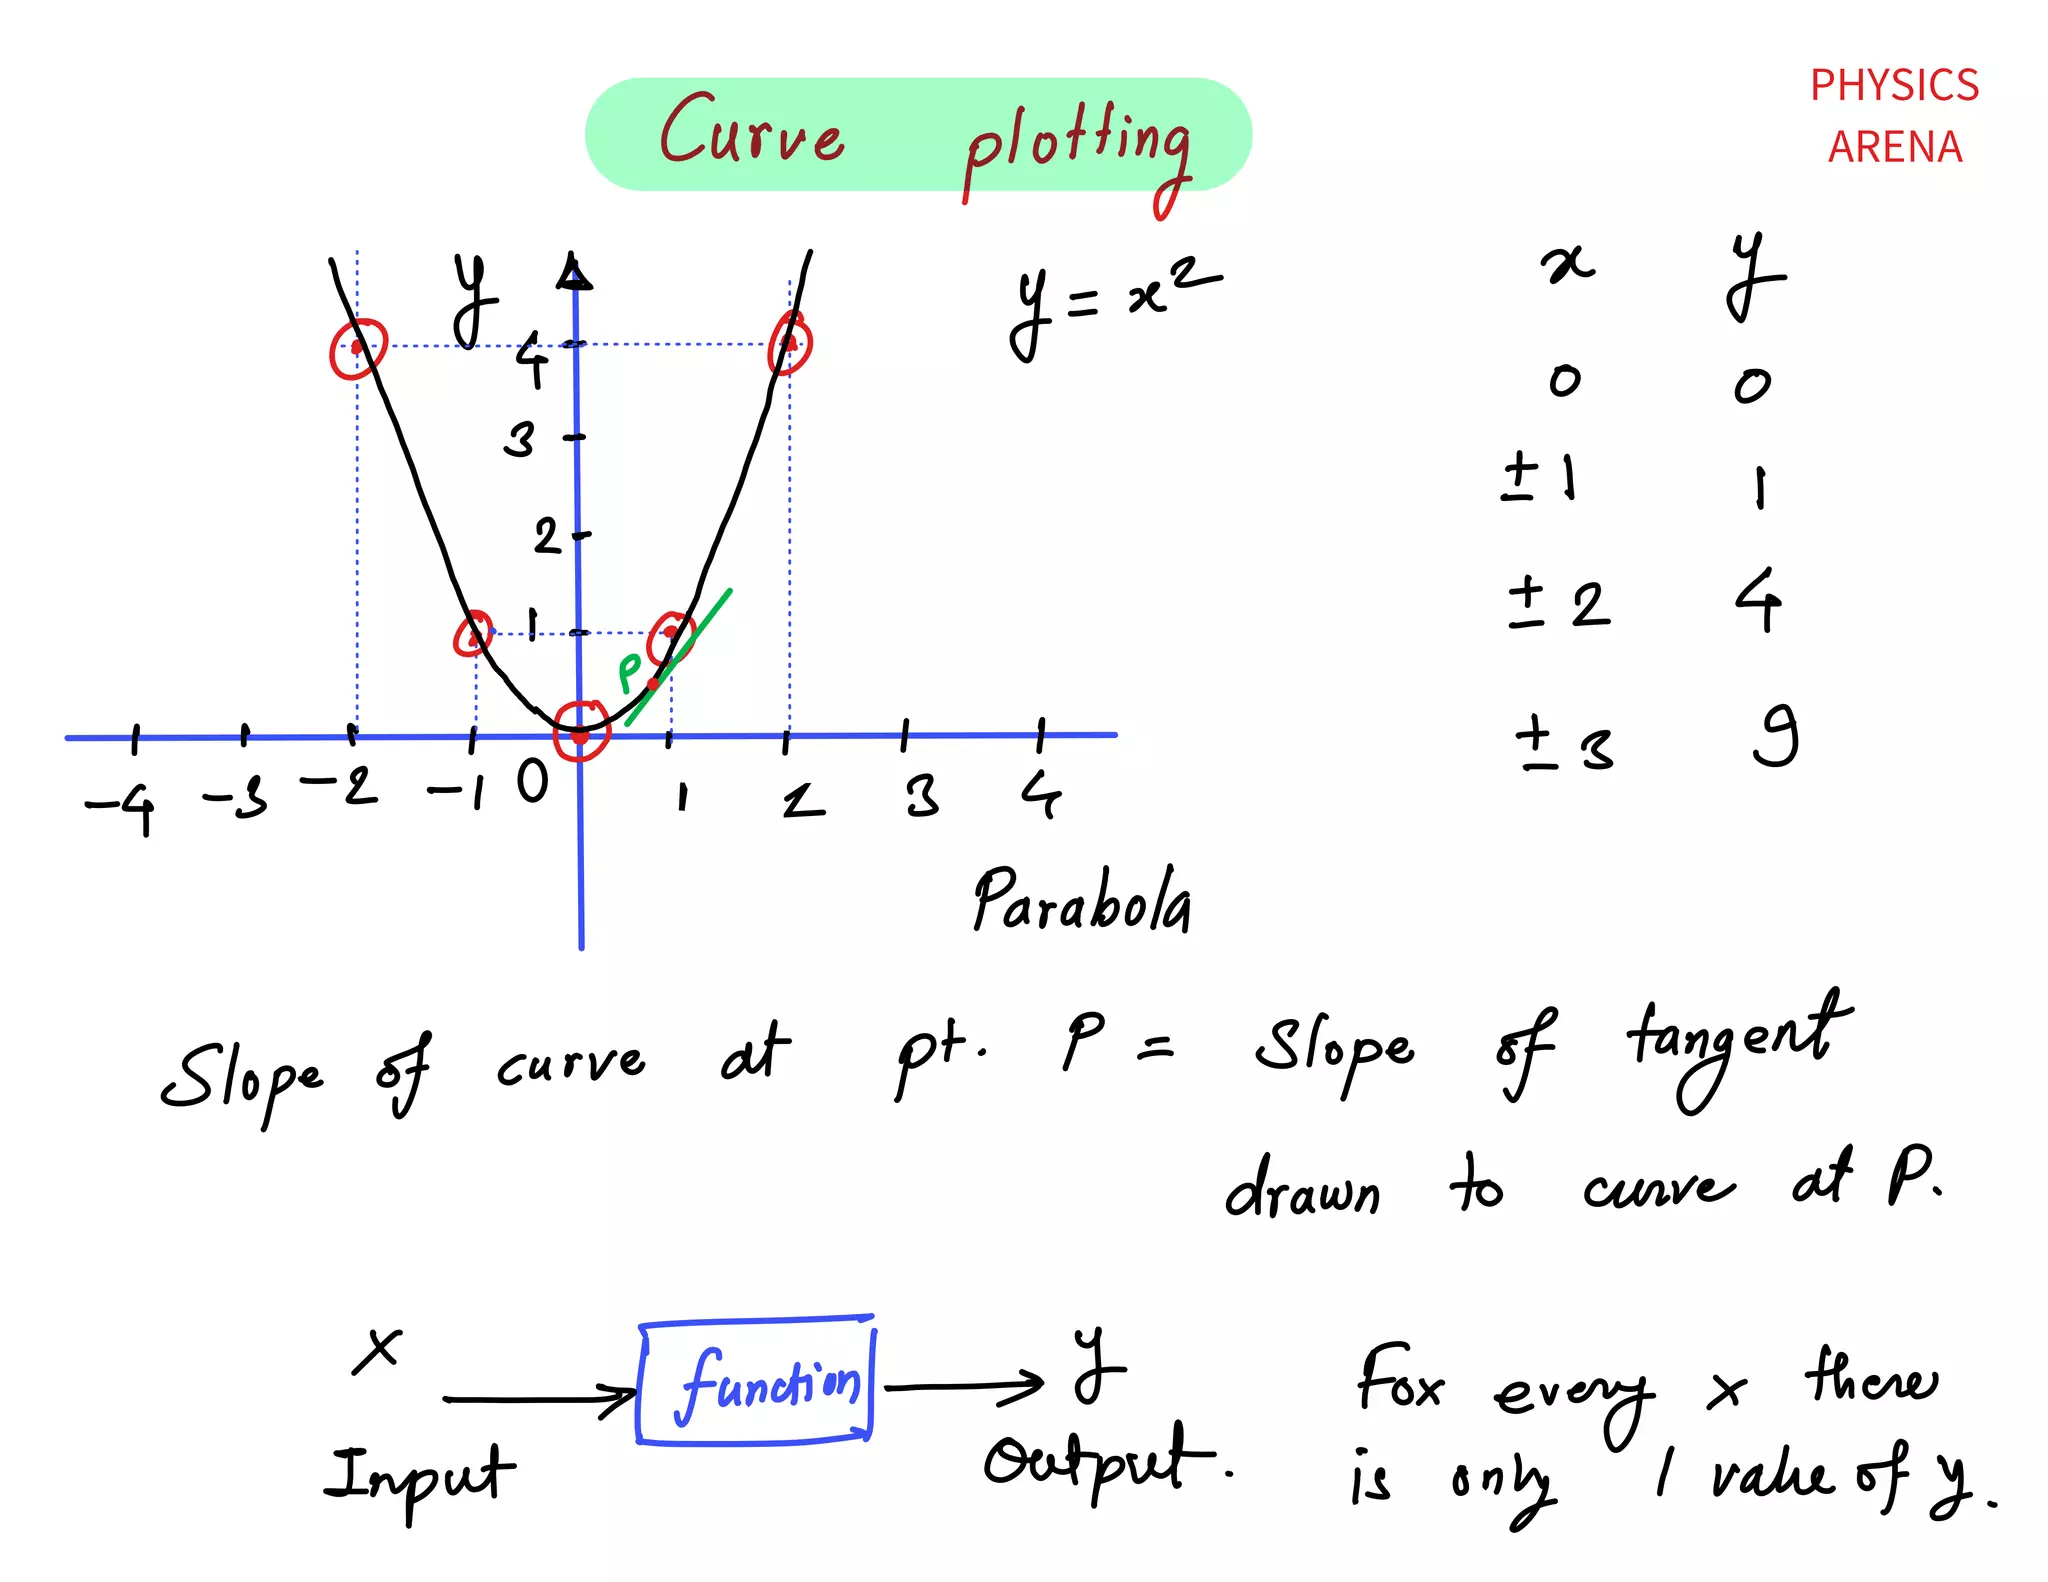 PHYSICS
ARENA
Curve plotting
y
4
3
2
1
P
-4 -3 -2 -1 0 1 2 3 4
y = x²
x y
0 0
±1 1
±2 4
±3 9
Parabola
Slope of curve at pt. P = Slope of tangent
drawn to curve at P.
x
Input
function
y
Output.
For every x there
is only 1 value of y.